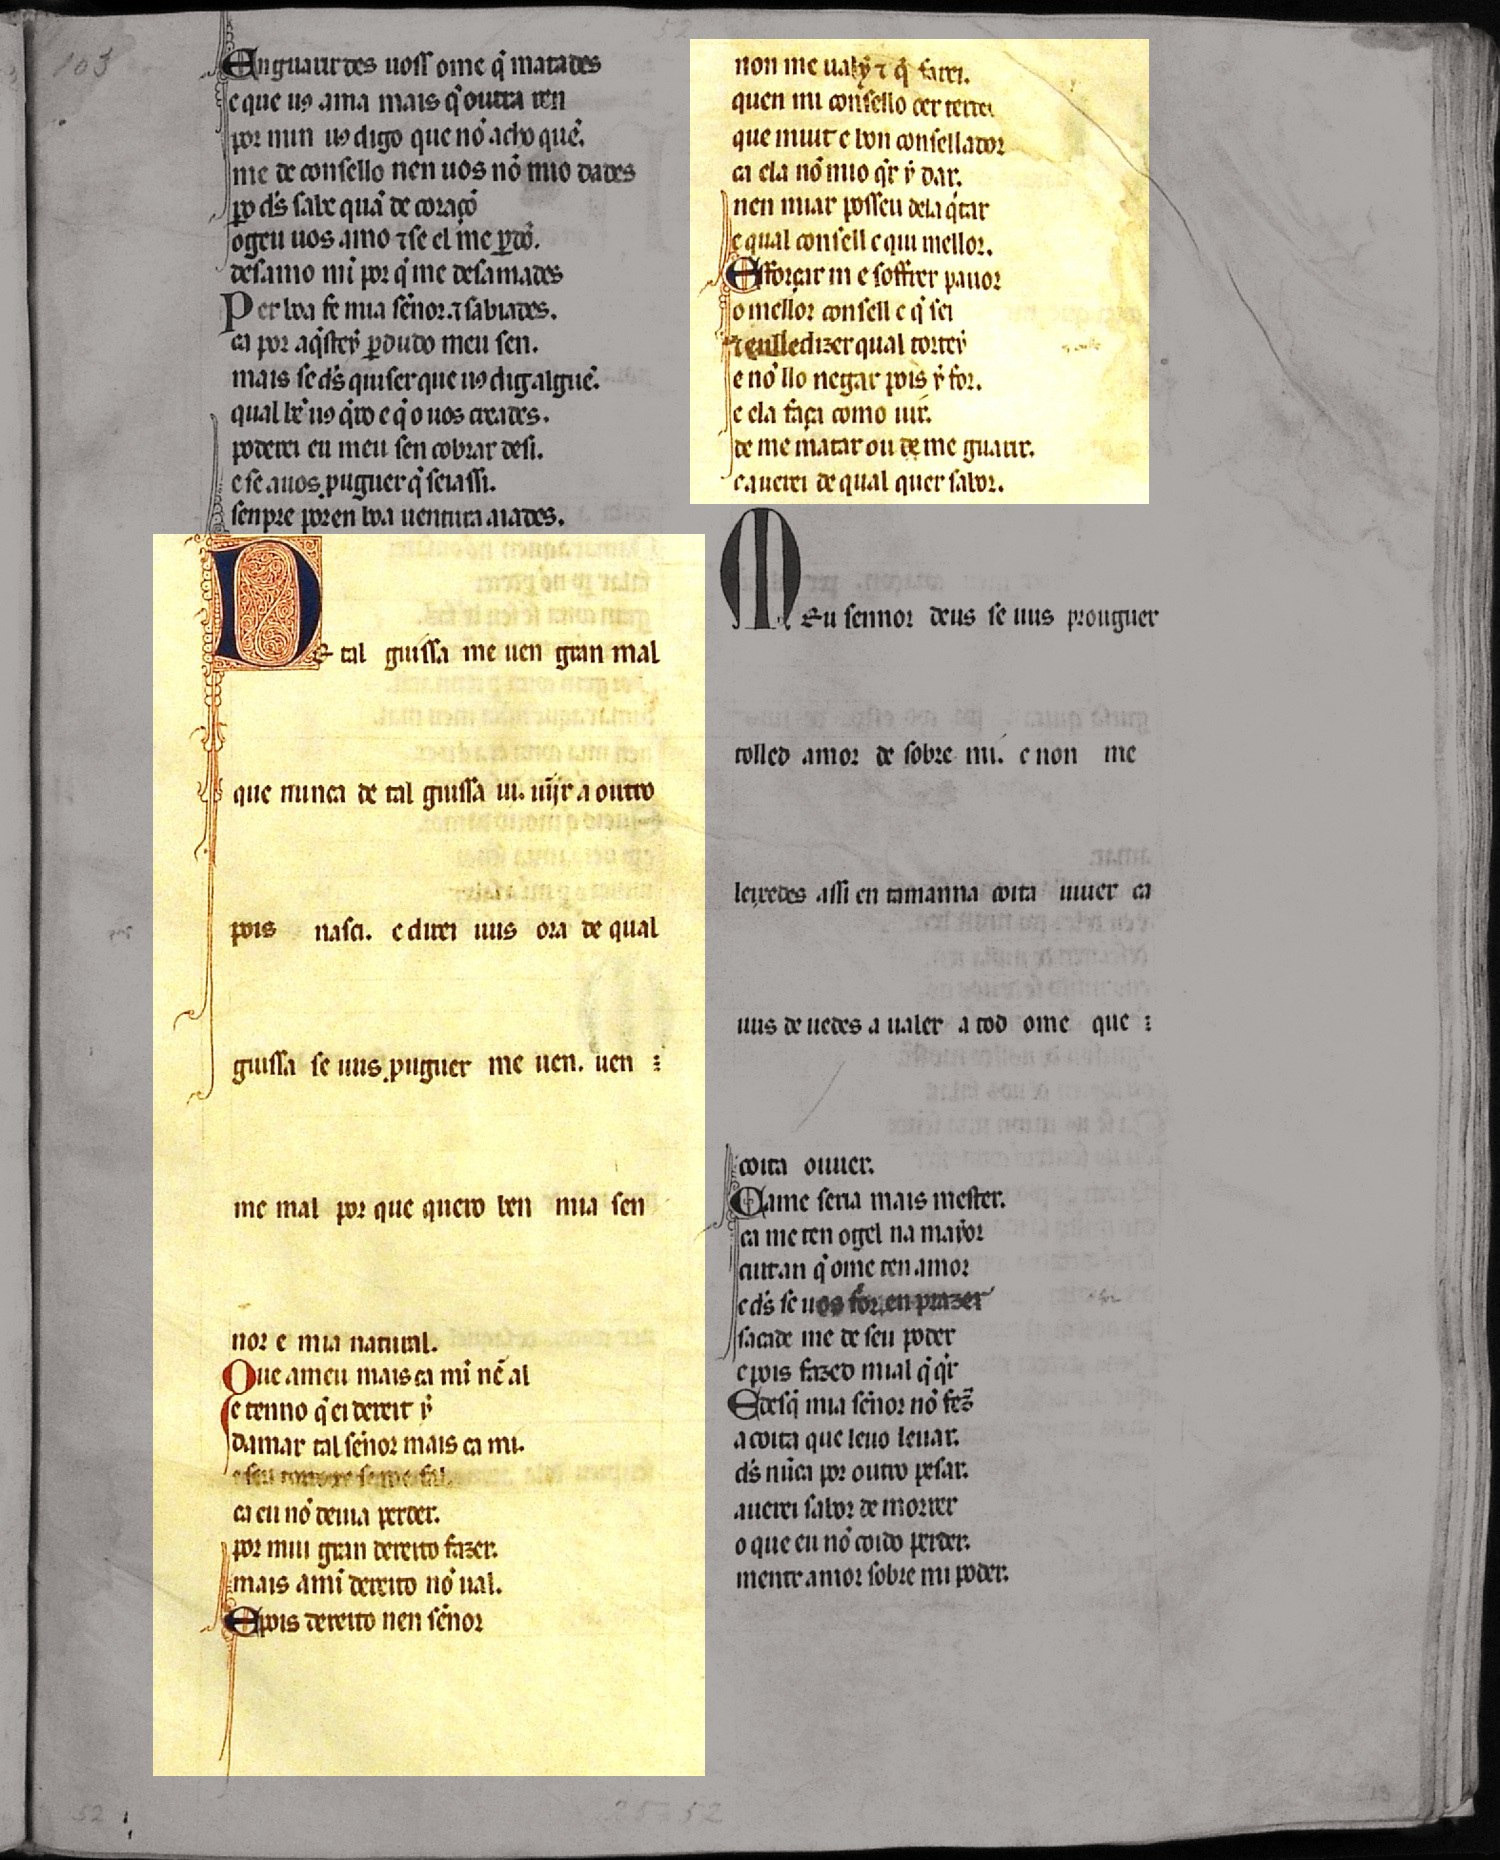 103
Enguaurdes uoss ome q̄ matades
e que uꝯ ama mais q̄ outra ren
por min uꝯ digo que nō acho quē.
me de consello nen uos nō mio dades
ꝑo d̄s sabe quā de coraçō
ogeu uos amo ⁊ se el me ꝑdō.
desamo mī por q̄ me desamades
Per boa fe mia sēnor. ⁊ sabiades.
ca por aq̄st eẏ ꝑdudo meu sen.
mais se d̄s quiser que uꝯ dig alguē.
qual bē uꝯ q̄ro e q̄ o uos creades.
poderei eu meu sen cobrar desi.
e se auos ꝓuguer q̄ sei assi.
senpre poren boa uentura aiades.
De tal guissa me uen gran mal
que nunca de tal guissa ui. uĳr a outro
pois nasci. e direi uus ora de qual
guissa se uus ꝓuguer me uen. uen
me mal por que quero ben mia sen
nor e mia natural.
Que ameu mais ca mī nē al
e tenno q̄ ei dereit ẏ
damar tal sēnor mais ca mi.
ca eu nō deuia perder.
por mui gran dereito fazer.
mais amī dereito nō ual.
E pois dereito nen sēnor
non me ual ẏ ⁊ q̄ farei.
quen mi consello der terrei
que muit e bon consellador
ca ela nō mio q̄r ẏ dar.
nen miar posseu dela q̄tar
e qual consell e qui mellor.
Esforçar m e soffrer pauor
o mellor consell e q̄ sei
dizer qual tort eẏ
e nō llo negar pois ẏ for.
e ela faça como uir.
de me matar ou de me guarir.
e auerei de qual quer sabor.
Meu sennor deus se uus prouguer
tolled amor de sobre mi. e non me
leixedes assi en tamanna coita uiuer ca
uus deuedes a ualer a tod ome que
coita ouuer.
Ca me seria mais mester.
ca me ten ogel na maẏor
cuitan q̄ ome ten amor
e d̄s se uos for en prazer
sacade me de seu poder
e pois fazed mi al q̄ q̄r
E desq̄ mia sēnor nō fez̄
a coita que leuo leuar.
d̄s nūca por outro pesar.
auerei sabor de morrer
o que eu nō coido perder.
mentr amor sobre mi poder.